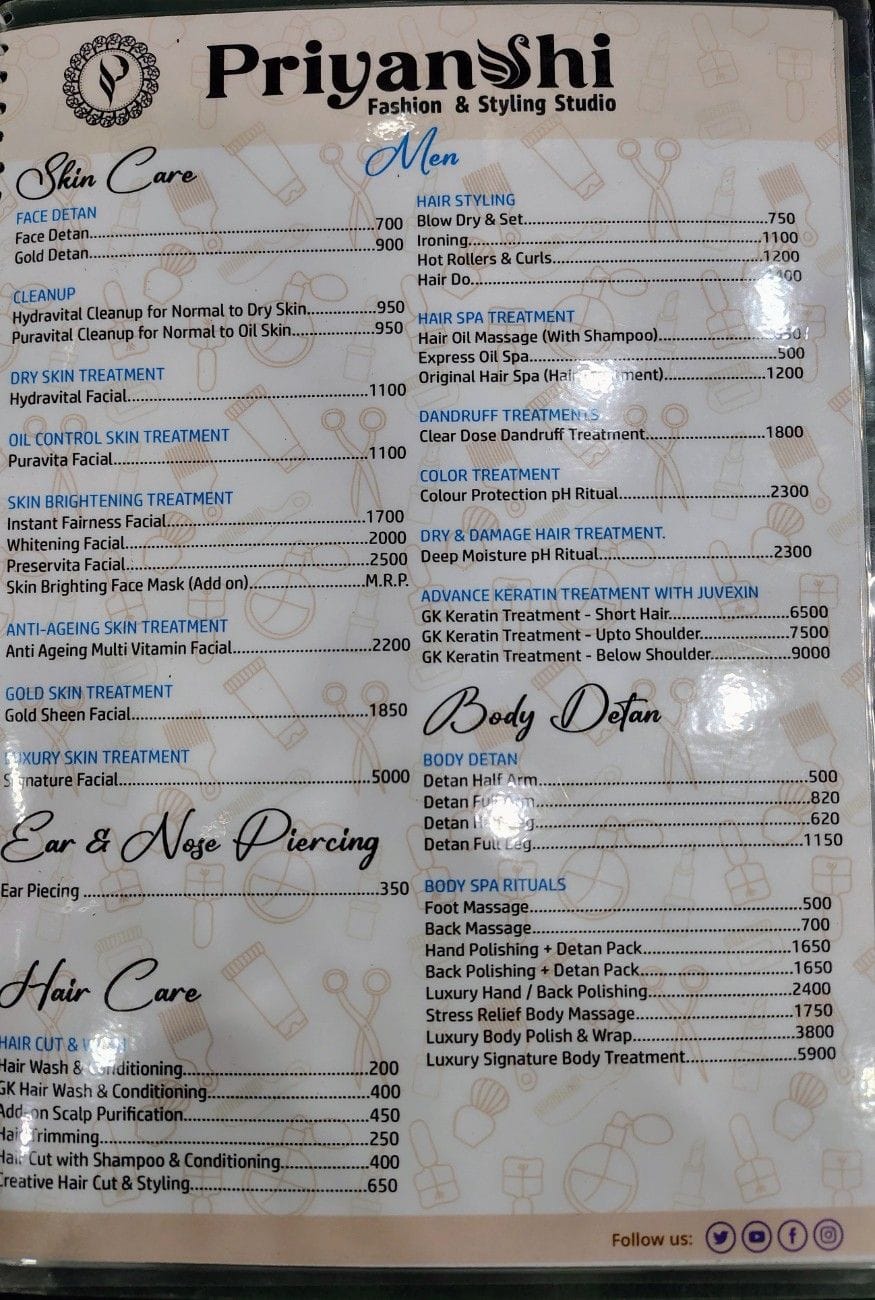 Priyanshi
Fashion & Styling Studio
Men
Skin Care
FACE DETAN
Face Detan..........700
Gold Detan..........900
CLEANUP
Hydravital Cleanup for Normal to Dry Skin..........950
Puravital Cleanup for Normal to Oil Skin..........950
DRY SKIN TREATMENT
Hydravital Facial..........1100
OIL CONTROL SKIN TREATMENT
Puravita Facial..........1100
SKIN BRIGHTENING TREATMENT
Instant Fairness Facial..........1700
Whitening Facial..........2000
Preservita Facial..........2500
Skin Brighting Face Mask (Add on)..........M.R.P.
ANTI-AGEING SKIN TREATMENT
Anti Ageing Multi Vitamin Facial..........2200
GOLD SKIN TREATMENT
Gold Sheen Facial..........1850
LUXURY SKIN TREATMENT
Signature Facial..........5000
Ear & Nose Piercing
Ear Piecing ..........350
Hair Care
HAIR CUT &
Hair Wash & Conditioning..........200
GK Hair Wash & Conditioning..........400
Add-on Scalp Purification..........450
Hair Trimming..........250
Hair Cut with Shampoo & Conditioning..........400
Creative Hair Cut & Styling..........650
HAIR STYLING
Blow Dry & Set..........750
Ironing..........1100
Hot Rollers & Curls..........1200
Hair Do..........
HAIR SPA TREATMENT
Hair Oil Massage (With Shampoo)..........
Express Oil Spa..........500
Original Hair Spa (Hair Treatment)..........1200
DANDRUFF TREATMENTS
Clear Dose Dandruff Treatment..........1800
COLOR TREATMENT
Colour Protection pH Ritual..........2300
DRY & DAMAGE HAIR TREATMENT.
Deep Moisture pH Ritual..........2300
ADVANCE KERATIN TREATMENT WITH JUVEXIN
GK Keratin Treatment - Short Hair..........6500
GK Keratin Treatment - Upto Shoulder..........7500
GK Keratin Treatment - Below Shoulder..........9000
Body Detan
BODY DETAN
Detan Half Arm..........500
Detan Full Arm..........820
Detan Half Leg..........620
Detan Full Leg..........1150
BODY SPA RITUALS
Foot Massage..........500
Back Massage..........700
Hand Polishing + Detan Pack..........1650
Back Polishing + Detan Pack..........1650
Luxury Hand / Back Polishing..........2400
Stress Relief Body Massage..........1750
Luxury Body Polish & Wrap..........3800
Luxury Signature Body Treatment..........5900
Follow us: